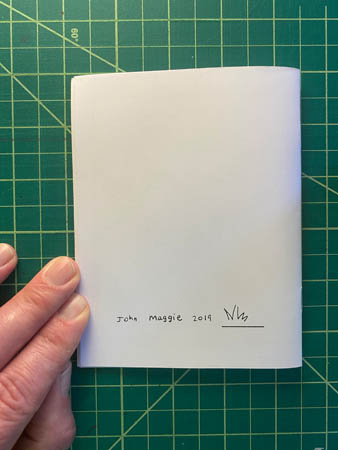 60°
John Maggie 2019